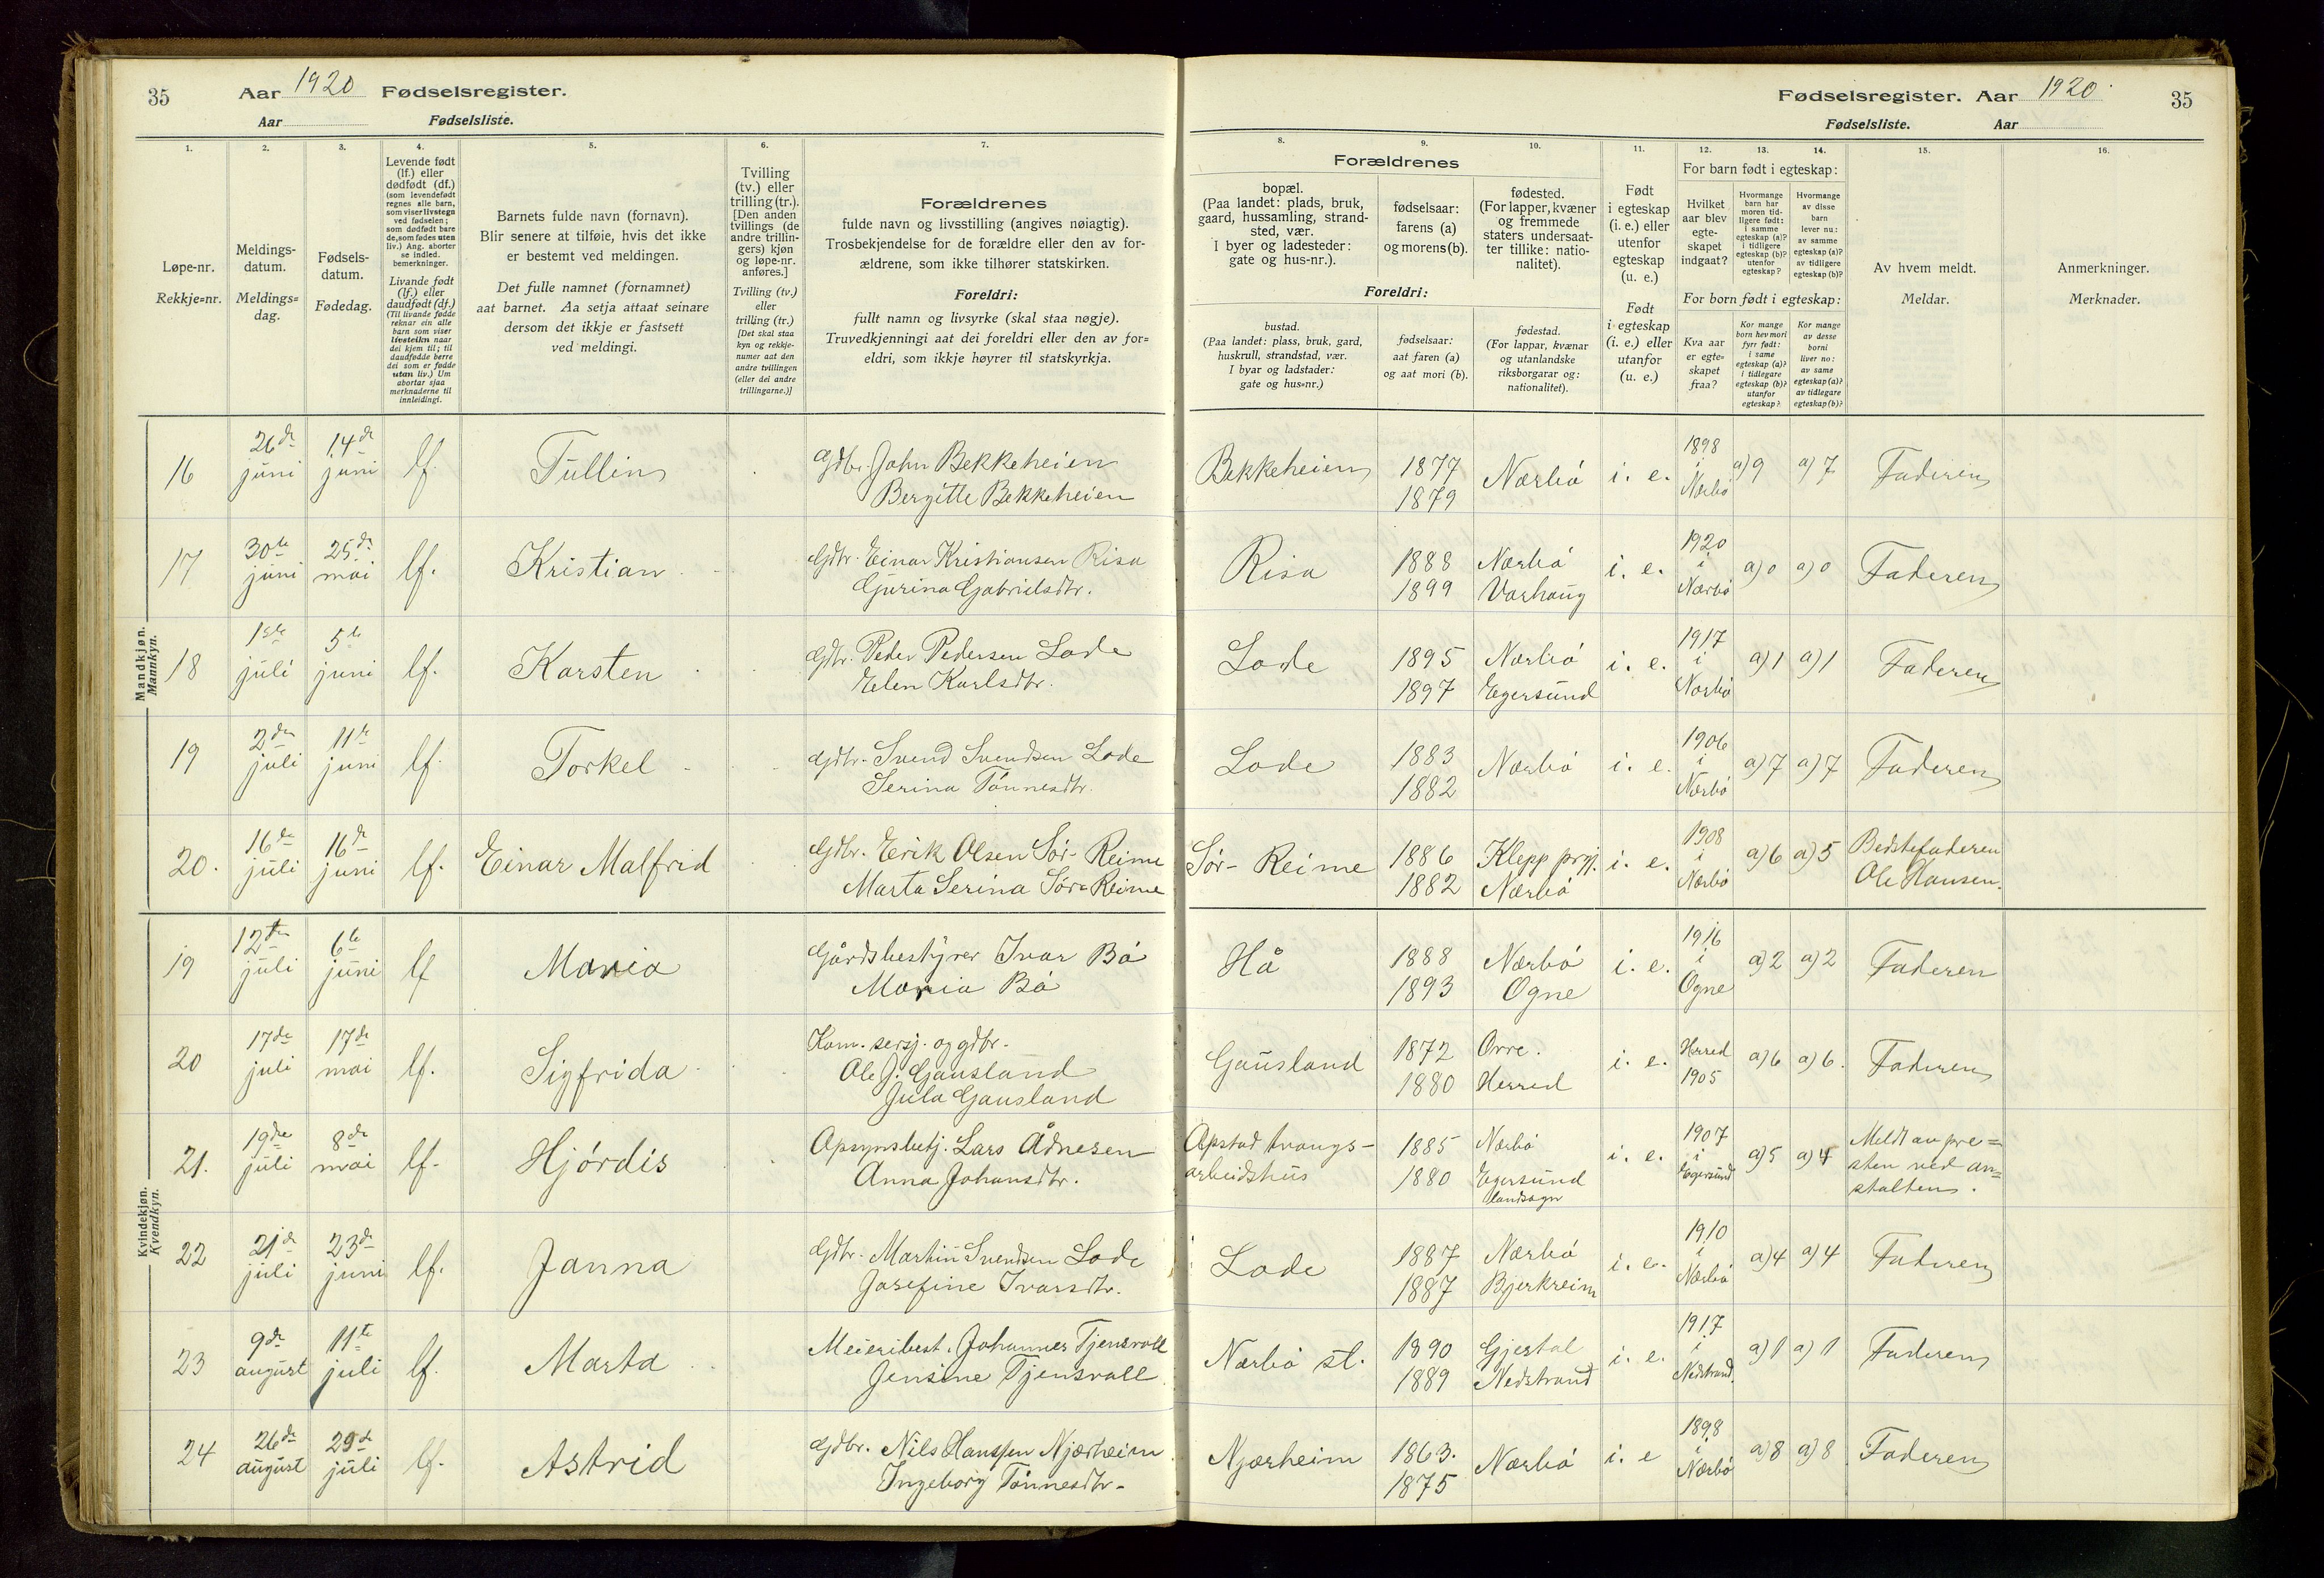 35 Aar 1920 Fødselsregister.
Aar Fødselsliste.
Fødselsregister. Aar 1920. 35
Fødselsliste. Aar
1. 2. 3. 4. 5. 6. 7.
Løpe-nr.
Rekkje=nr.
Meldings-
datum.
Meldings=
dag.
Fødsels-
datum.
Fødedag.
Levende født
(lf.) eller
dødfødt (df.)
(som levendefødt
regnes alle barn,
som viser livstegn
ved fødselen;
som dødfødt bare
de, som fødes uten
liv.) Ang. aborter
se indled.
bemerkninger.
Livande født
(lf.) eller
daudfødt (df.)
(Til livande fødde
reknar ein alle
barn som viser
livsteikn naar
dei kjem til; til
daudfødde berre
dei som er fødde
utan liv.) Um
abortar sjaa
merknaderne til
innleidingi.
Barnets fulde navn (fornavn).
Blir senere at tilføie, hvis det ikke
er bestemt ved meldingen.
Det fulle namnet (fornamnet)
aat barnet. Aa setja attaat seinare
dersom det ikkje er fastsett
ved meldingi.
Tvilling
(tv.) eller
trilling (tr.).
[Den anden
tvillings (de
andre trillin-
gers) kjøn
og løpe-nr.
anføres.]
Tvilling (tv.)
eller
trilling (tr.)
[Det skal staa
kyn og rekkje-
numer aat den
andre tvillingen
(eller dei andre
trillingarne.)]
Forældrenes
fulde navn og livsstilling (angives nøiagtig).
Trosbekjendelse for de forældre eller den av for-
ældrene, som ikke tilhører statskirken.
Foreldri:
fullt namn og livsyrke (skal staa nøgje).
Truvedkjenningi aat dei foreldri eller den av for=
eldri, som ikkje høyrer til statskyrkja.
8. 9. 10. 11. 12. 13. 14. 15. 16.
Forældrenes
bopæl.
(Paa landet: plads, bruk,
gaard, hussamling, strand-
sted, vær.
I byer og ladesteder:
gate og hus-nr.).
fødselsaar:
farens (a)
og morens (b).
fødested.
(For lapper, kvæner
og fremmede
staters undersaat-
ter tillike: natio-
nalitet).
Foreldri:
bustad.
(Paa landet: plass, bruk, gard,
huskrull, strandstad, vær.
I byar og ladstader:
gate og hus=nr.)
fødselsaar:
aat faren (a)
og aat mori (b).
fødestad.
(For lappar, kvænar
og utanlandske
riksborgarar og:
nationalitet).
Født
i egteskap
(i. e.) eller
utenfor
egteskap
(u. e.)
Født
i egteskap
(i. e.) eller
utanfor
(u. e.)
For barn født i egteskap:
Hvilket
aar blev
egte-
skapet
indgaat?
Hvormange
barn har
moren tid-
ligere født:
i samme
egteskap (a)?
i tidligere
egteskap (b)?
utenfor
egteskap?
Hvormange
av disse
barn
lever nu:
av samme
egteskap (a)?
av tidligere
egteskap (b)?
For born født i egteskap:
Kva aar
er egte=
skapet
fraa?
Kor mange
born hev mori
fyrr født:
i same
egteskap (a)?
i tidlegare
egteskap (b)?
utanfor
egteskap?
Kor mange
av desse
borni
liver no:
av same
egteskap (a)?
av tidlegare
egteskap (b)?
Av hvem meldt.
Meldar.
Anmerkninger.
Merknader.
Mandkjøn.
Mannkyn.
16 26de juni 14de juni lf. Tullin Gdbr. John Bekkeheien
Bergitte Bekkeheien
Bekkeheien 1877 1879 Nærbö i. e. 1898 i Nærbö a) 9 a) 7 Faderen
17 30te juni 25de mai lf. Kristian Gdbr. Einar Kristiansen Risa
Gurina Gabrielsdtr.
Risa 1888 Nærbö 1899 Varhaug i. e. 1920 i Nærbö a) 0 a) 0 Faderen
18 1ste juli 5te juni lf. Karsten Gdbr. Peder Pedersen Lode
Elen Karlsdtr.
Lode 1895 Nærbö 1897 Egersund i. e. 1917 i Nærbö a) 1 a) 1 Faderen
19 2den juli 11te juni lf. Torkel Gdbr. Svend Svendsen Lode
Serina Tönnesdtr.
Lode 1883 1882 Nærbö i. e. 1906 i Nærbö a) 7 a) 7 Faderen
20. 16de juli 16de juni lf. Einar Malfrid Gdbr. Erik Olsen Sör-Reime
Marta Serina Sör-Reime
Sör-Reime 1886 Klepp prgj. 1882 Nærbö i. e. 1908 i Nærbö a) 6 a) 5 Bedstefaderen
Ole Hansen.
Kvindekjøn.
Kvendkyn.
19 12te juli 6te juni lf Maria Gårdsbestyrer Ivar Bö
Maria Bö
Hå 1888 Nærbö 1893 Ogne i. e. 1916 i Ogne a) 2 a) 2 Faderen
20 17de juli 17de mai lf. Sigfrida Kom. sersj. og gdbr.
Ole J. Gausland
Jula Gausland
Gausland 1872 Orre. 1880 Herred i. e. Herred 1905 a) 6 a) 6. Faderen
21. 19de juli 8de mai lf. Hjördis Opsynsbetj. Lars Ådnesen
Anna Johansdtr.
Opstad tvangs-
arbeidshus
1885 Nærbö 1880 Egersund landsogn i. e. 1907 i Egersund a) 5 a) 4 Meldt av pre=
sten ved an=
stalten.
22 21de juli 23de juni lf. Janna Gdbr. Martin Svendsen Lode
Josefine Ivarsdtr.
Lode 1887 Nærbö 1887 Bjerkreim i. e. 1910 i Nærbö a) 4 a) 4 Faderen
23 9de august 11te juli lf. Marta Meieribest. Johannes Tjensvoll
Jensine Tjensvoll
Nærbö st. 1890 Gjestal 1889 Nedstrand i. e. 1917 i Nedstrand. a) 1 a) 1 Faderen
24 26de august 29de juli lf. Astrid Gdbr. Nils Hanssen Njærheim
Ingeborg Tönnesdtr.
Njærheim 1863. 1875 Nærbö i. e 1898 i Nærbö a) 8 a) 8 Faderen